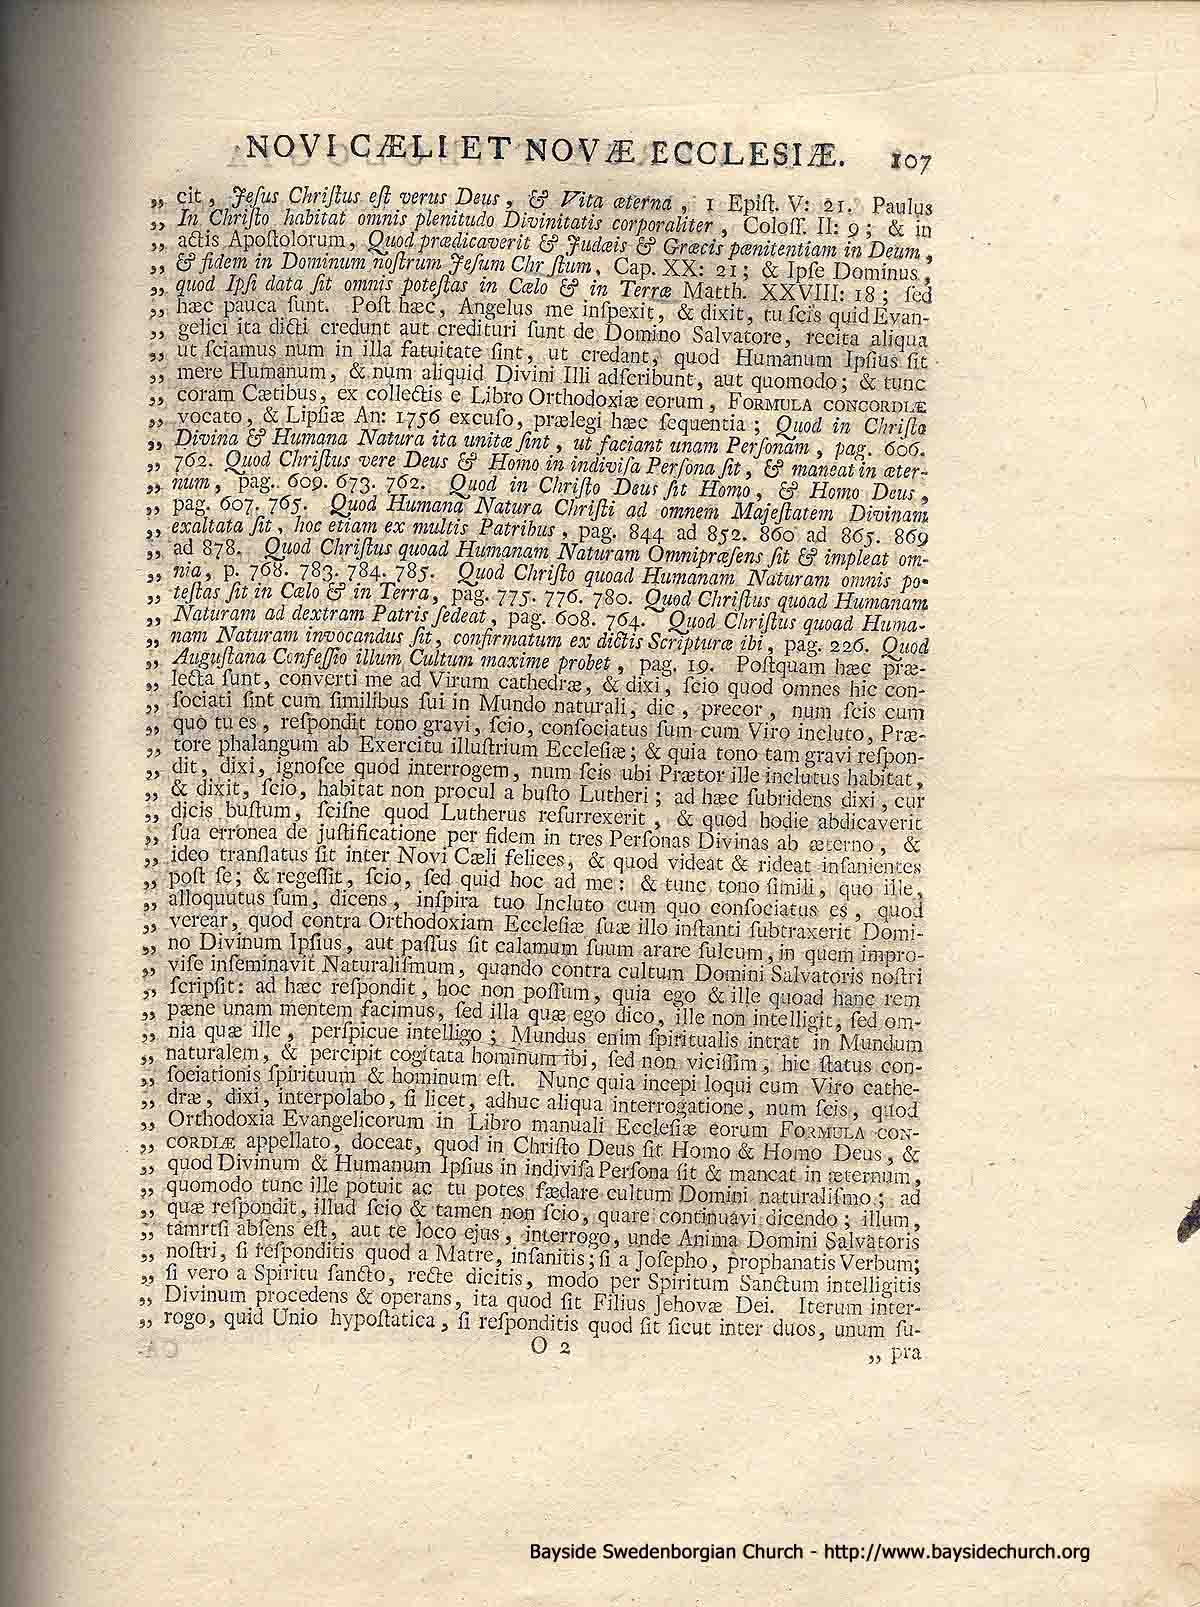 NOVI CÆLI ET NOVÆ ECCLESIÆ. 107
„ cit, Jeſus Chriſtus eſt verus Deus, & Vita æterna, 1 Epiſt. V: 21. Paulus
„ In Chriſto habitat omnis plenitudo Divinitatis corporaliter, Coloſſ. II: 9; & in
„ actis Apoſtolorum, Quod prædicaverit & Judæis & Græcis pænitentiam in Deum,
„ & fidem in Dominum noſtrum Jeſum Chr ſtum, Cap. XX: 21; & Ipſe Dominus,
„ quod Ipſi data ſit omnis poteſtas in Cælo & in Terræ Matth. XXVIII: 18; ſed
„ hæc pauca ſunt. Poſt hæc, Angelus me inſpexit, & dixit, tu ſcis quid Evan-
„ gelici ita dicti credunt aut credituri ſunt de Domino Salvatore, recita aliqua
„ ut ſciamus num in illa fatuitate ſint, ut credant, quod Humanum Ipſius ſit
„ mere Humanum, & num aliquid Divini Illi adſcribunt, aut quomodo; & tunc
„ coram Cætibus, ex collectis e Libro Orthodoxiæ eorum, FORMULA CONCORDIÆ
„ vocato, & Lipſiæ An: 1756 excuſo, prælegi hæc ſequentia; Quod in Chriſto
„ Divina & Humana Natura ita unitæ ſint, ut faciant unam Perſonam, pag. 606.
„ 762. Quod Chriſtus vere Deus & Homo in indiviſa Perſona ſit, & maneat in æter-
„ num, pag. 609. 673. 762. Quod in Chriſto Deus ſit Homo, & Homo Deus,
„ pag. 607. 765. Quod Humana Natura Chriſti ad omnem Majeſtatem Divinam
„ exaltata ſit, hoc etiam ex multis Patribus, pag. 844 ad 852. 860 ad 865. 869
„ ad 878. Quod Chriſtus quoad Humanam Naturam Omnipræſens ſit & impleat om-
„ nia, p. 768. 783. 784. 785. Quod Chriſto quoad Humanam Naturam omnis po-
„ teſtas ſit in Cælo & in Terra, pag. 775. 776. 780. Quod Chriſtus quoad Humanam
„ Naturam ad dextram Patris ſedeat, pag. 608. 764. Quod Chriſtus quoad Huma-
„ nam Naturam invocandus ſit, confirmatum ex dictis Scripturæ ibi, pag. 226. Quod
„ Auguſtana Confeſſio illum Cultum maxime probet, pag. 19. Poſtquam hæc præ-
„ lecta ſunt, converti me ad Virum cathedræ, & dixi, ſcio quod omnes hic con-
„ ſociati ſint cum ſimilibus ſui in Mundo naturali, dic, precor, num ſcis cum
„ quo tu es, reſpondit tono gravi, ſcio, conſociatus ſum cum Viro incluto, Præ-
„ tore phalangum ab Exercitu illuſtrium Eccleſiæ; & quia tono tam gravi reſpon-
„ dit, dixi, ignoſce quod interrogem, num ſcis ubi Prætor ille inclutus habitat,
„ & dixit, ſcio, habitat non procul a buſto Lutheri; ad hæc ſubridens dixi, cur
„ dicis buſtum, ſciſne quod Lutherus reſurrexerit, & quod hodie abdicaverit
„ ſua erronea de juſtificatione per fidem in tres Perſonas Divinas ab æterno, &
„ ideo tranſlatus ſit inter Novi Cæli felices, & quod videat & rideat inſanientes
„ poſt ſe; & regeſſit, ſcio, ſed quid hoc ad me: & tunc tono ſimili, quo ille,
„ alloquutus ſum, dicens, inſpira tuo Incluto cum quo conſociatus es, quod
„ verear, quod contra Orthodoxiam Eccleſiæ ſuæ illo inſtanti ſubtraxerit Domi-
„ no Divinum Ipſius, aut paſſus ſit calamum ſuum arare ſulcum, in quem impro-
„ viſe inſeminavit Naturaliſmum, quando contra cultum Domini Salvatoris noſtri
„ ſcripſit: ad hæc reſpondit, hoc non poſſum, quia ego & ille quoad hanc rem
„ pæne unam mentem facimus, ſed illa quæ ego dico, ille non intelligit, ſed om-
„ nia quæ ille, perſpicue intelligo; Mundus enim ſpiritualis intrat in Mundum
„ naturalem, & percipit cogitata hominum ibi, ſed non viciſſim, hic ſtatus con-
„ ſociationis ſpirituum & hominum eſt. Nunc quia incepi loqui cum Viro cathe-
„ dræ, dixi, interpolabo, ſi licet, adhuc aliqua interrogatione, num ſcis, quod
„ Orthodoxia Evangelicorum in Libro manuali Eccleſiæ eorum FORMULA CON-
„ CORDIÆ appellato, doceat, quod in Chriſto Deus ſit Homo & Homo Deus, &
„ quod Divinum & Humanum Ipſius in indiviſa Perſona ſit & maneat in æternum,
„ quomodo tunc ille potuit ac tu potes fædare cultum Domini naturaliſmo; ad
„ quæ reſpondit, illud ſcio & tamen non ſcio, quare continuavi dicendo; illum,
„ tamrtſi abſens eſt, aut te loco ejus, interrogo, unde Anima Domini Salvatoris
„ noſtri, ſi reſponditis quod a Matre, inſanitis; ſi a Joſepho, prophanatis Verbum;
„ ſi vero a Spiritu ſancto, recte dicitis, modo per Spiritum Sanctum intelligitis
„ Divinum procedens & operans, ita quod ſit Filius Jehovæ Dei. Iterum inter-
„ rogo, quid Unio hypoſtatica, ſi reſponditis quod ſit ſicut inter duos, unum ſu-
O 2 „ pra
Bayside Swedenborgian Church - http://www.baysidechurch.org